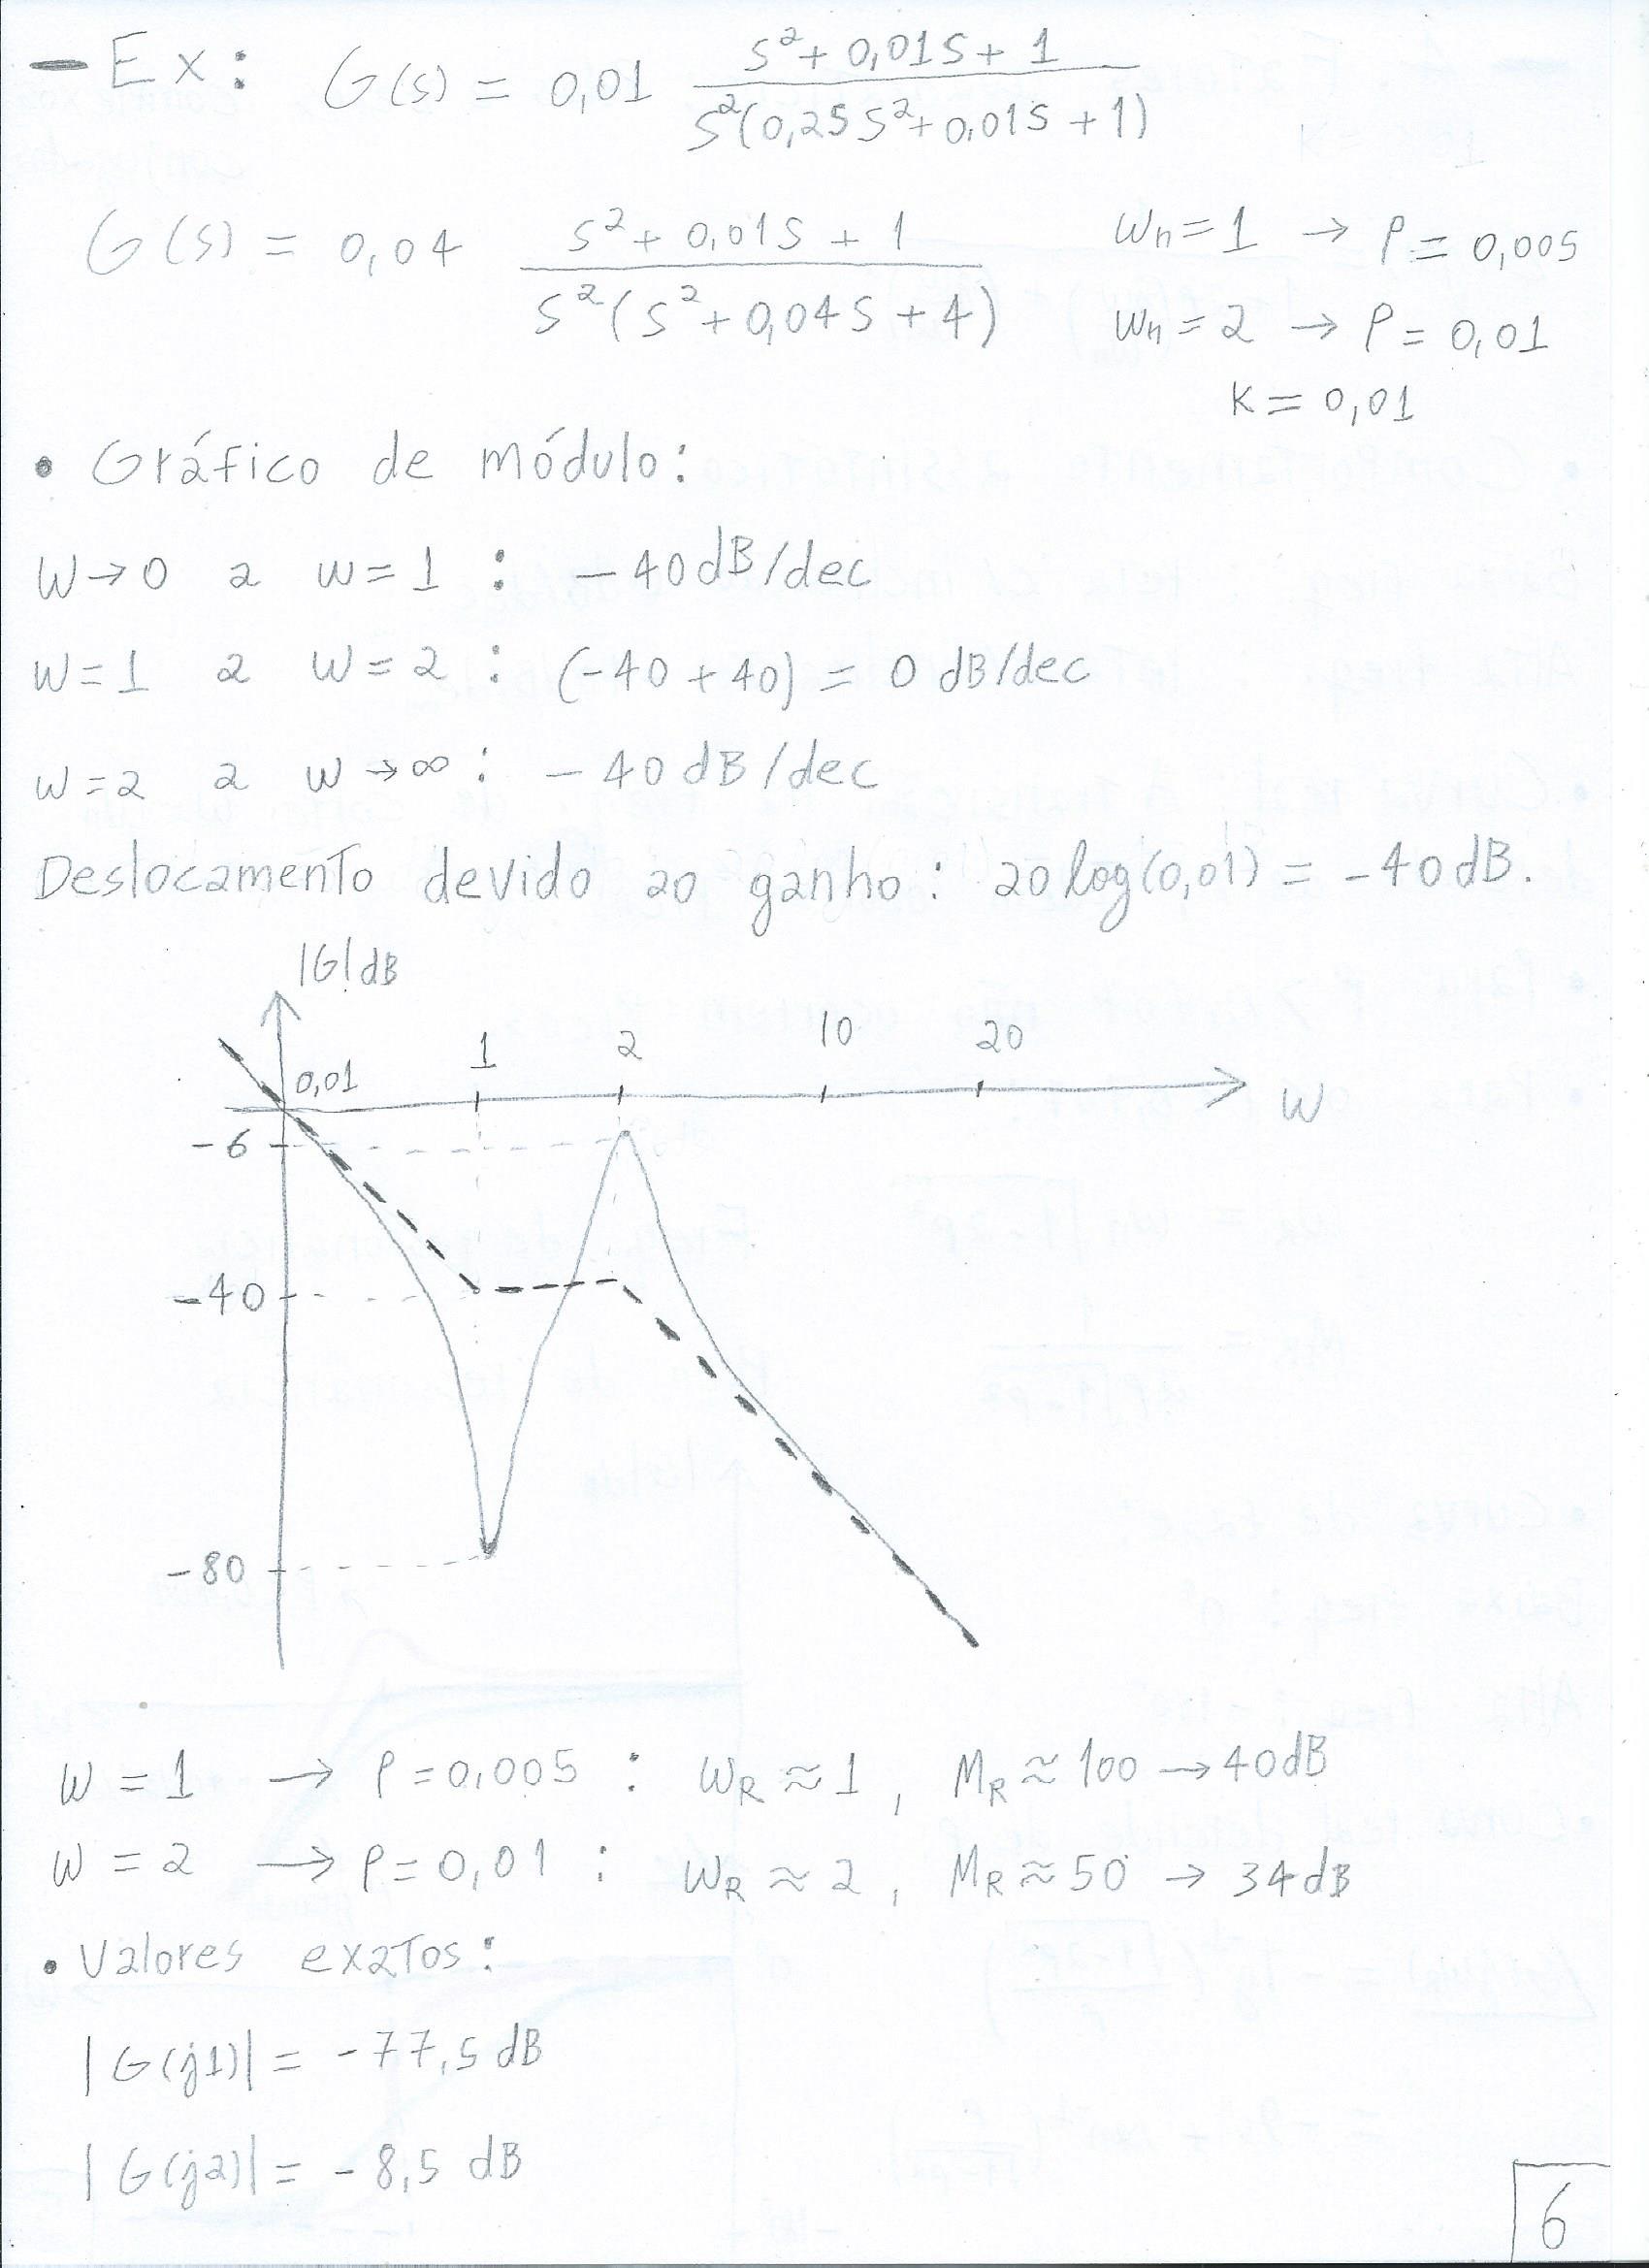 - Ex: G(s) = 0,01 (s² + 0,01s + 1) / (s²(0,25s² + 0,01s + 1))
G(s) = 0,04 (s² + 0,01s + 1) / (s²(s² + 0,04s + 4))
Wn = 1 → ρ = 0,005
Wn = 2 → ρ = 0,01
K = 0,01
• Gráfico de módulo:
W→0 a w=1 : -40dB/dec
W=1 a W=2 : (-40+40) = 0 dB/dec
W=2 a W→∞ : -40dB/dec
Deslocamento devido ao ganho: 20log(0,01) = -40dB.
|G|dB
0,01 1 2 10 20
W
-6
-40
-80
W = 1 → ρ = 0,005 : WR ≈ 1, MR ≈ 100 → 40dB
W = 2 → ρ = 0,01 : WR ≈ 2, MR ≈ 50 → 34dB
• Valores exatos:
|G(j1)| = -77,5 dB
|G(j2)| = -8,5 dB
6